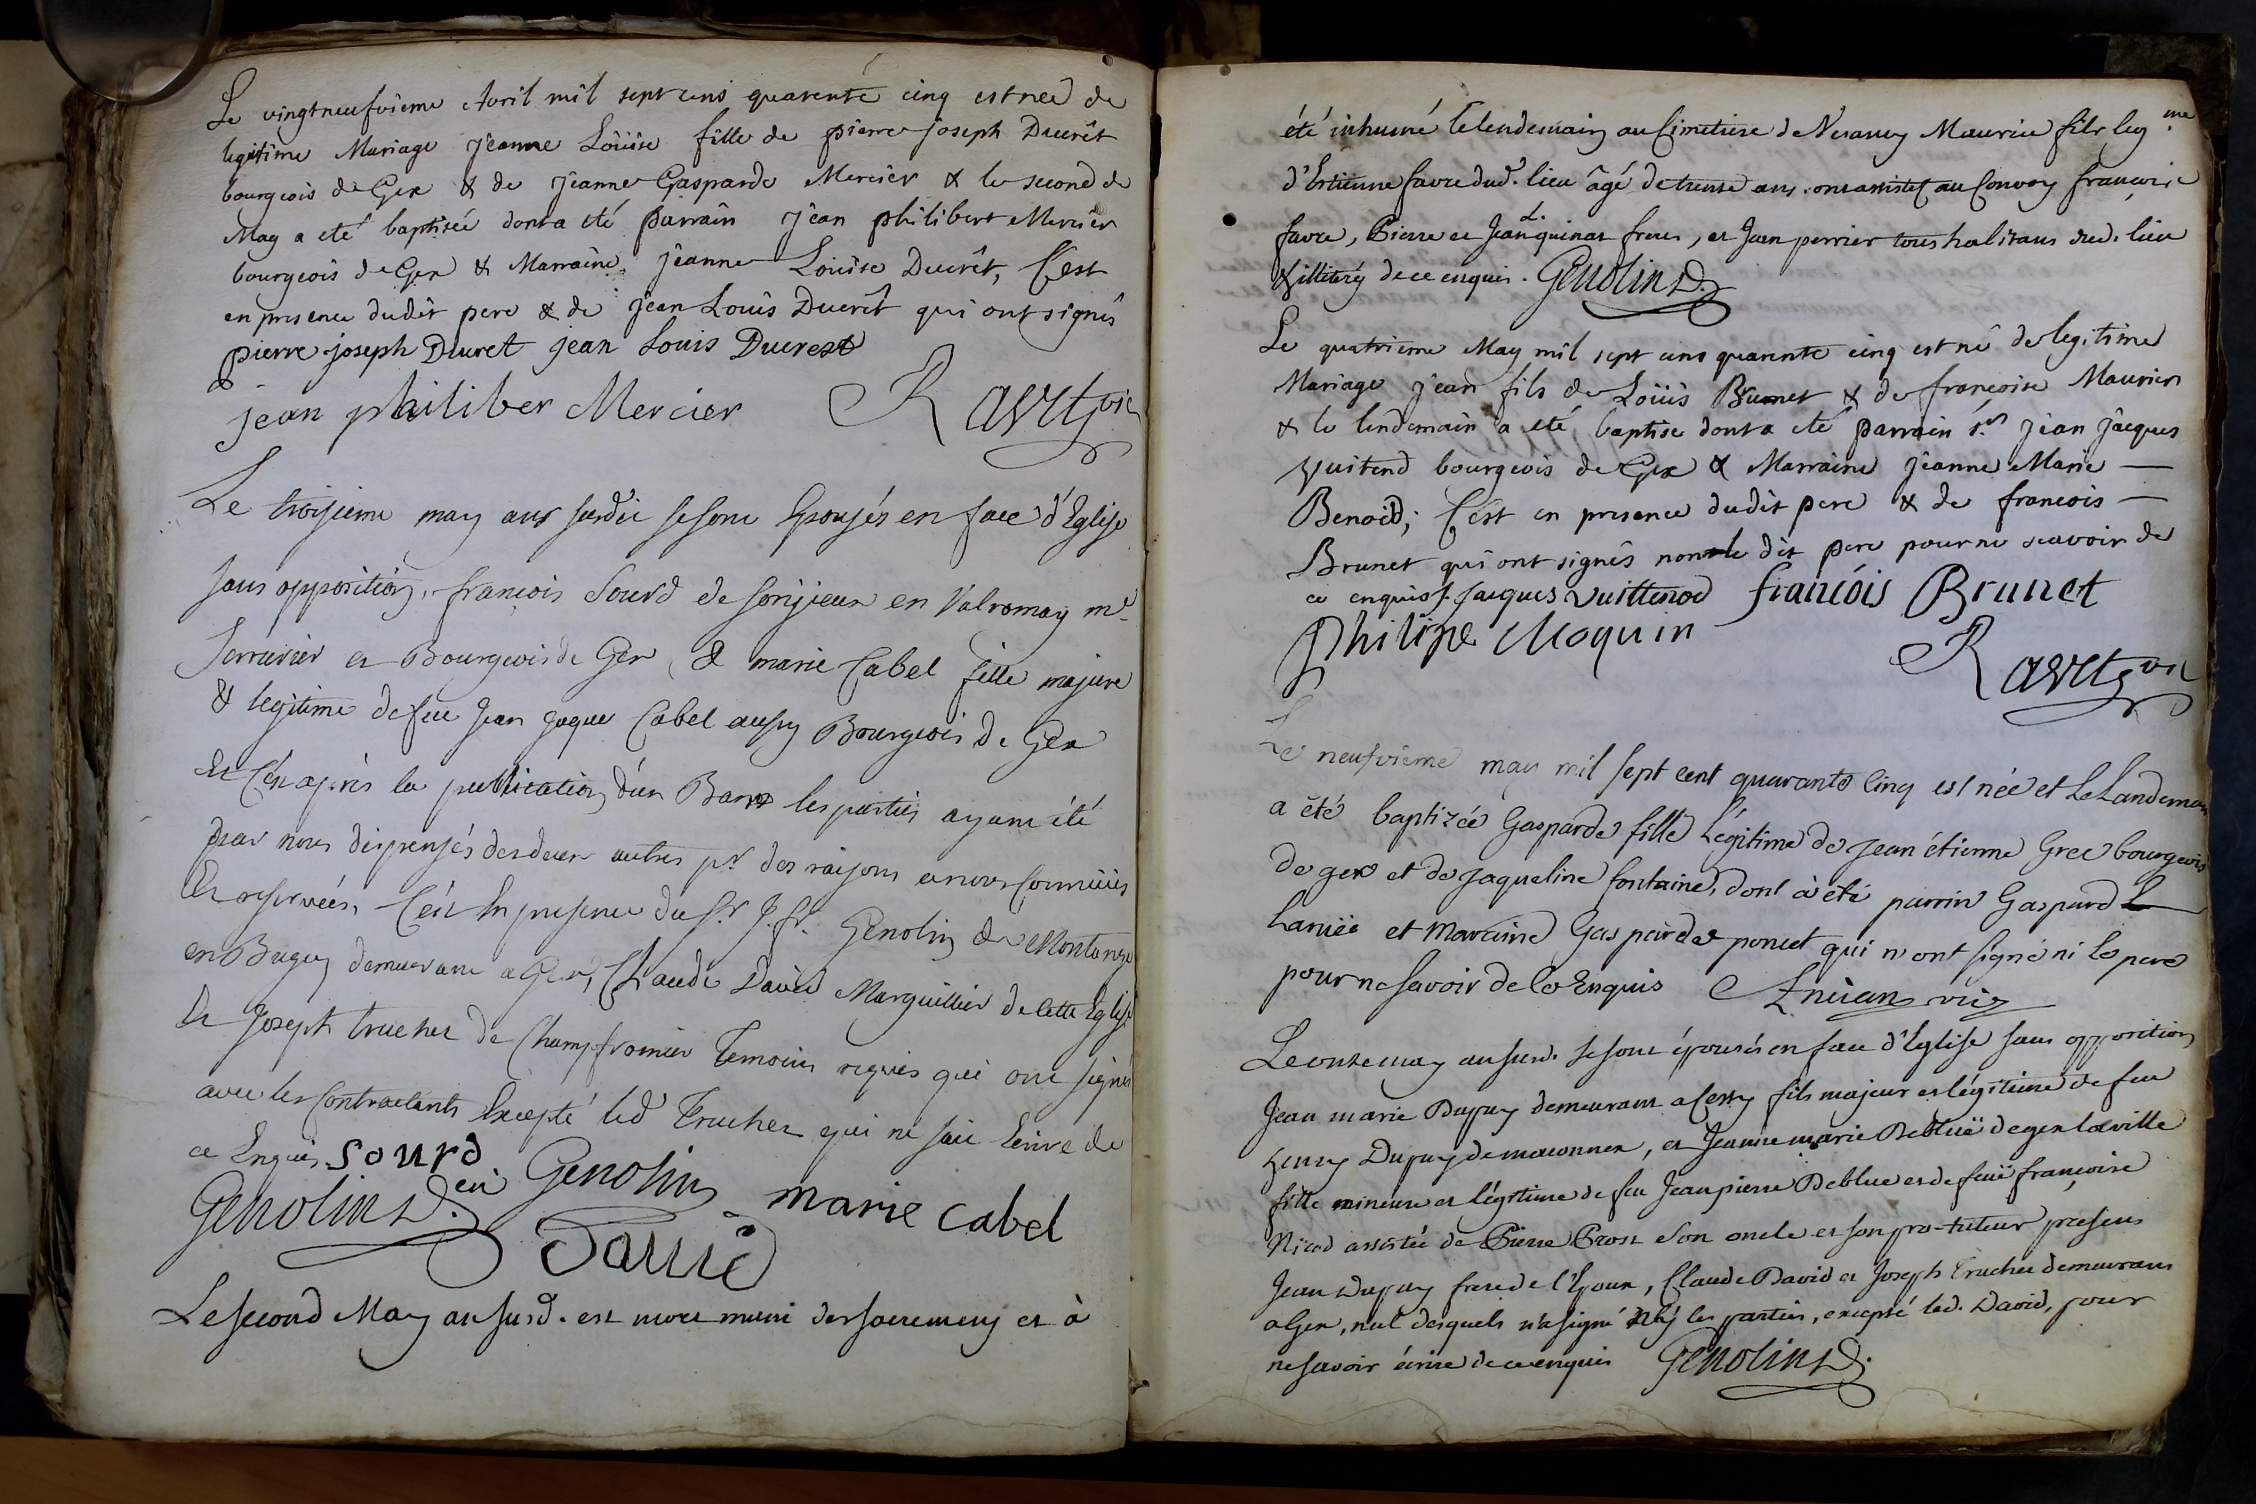 Le vingtneufvieme Avril mil sept cens quarente cinq est née de
legitime Mariage jeanne Loüise fille de pierre joseph Ducrêt
bourgeois de Gex & de jeanne Gasparde Mercier & le second de
May a eté baptisée dont a eté parrain jean philibert Mercier
bourgeois de Gex & Marraine jeanne Loüise Ducrêt, C'est
en presence dudit pere & de jean Louis Ducrêt qui ont signés
pierre joseph Ducret jean Louis Ducrest
jean philiber Mercier Ravet
Le troisieme may an susdit se sont Epousés en face d'Eglise
sans opposition, françois Sourd de songieux en Valromay me
Serrurier et Bourgeois de Gex, & marie Cabel fille majeure
& legitime de feu Jean jaque Cabel aussy Bourgeois de Gex
Et C'est après la publication d'un Bans les parties ayant été
par nous dispensés des deux autres pr. des raisons a nous Connües
Et reservées, C'est En presence du Sr. J. Genolin de Montange
en Bugey demeurant a Gex, Claude David Marguillier de cette Eglise
Et Joseph trucher de Champfromier Temoins requis qui ont signé
avec les Contractants Excepté led Trucher qui ne sait Ecrire de
ce Enquis Sourd
Genolin Genolin marie cabel
David
Le second May an susd. est mort muni des sacremens et à
été inhumé le lendemain au Cimetiere de Vesancy Maurice fils leg.me
d'Estienne favre dud. lieu âgé de trente ans, ont assisté au Convoy françois
favre, Pierre et Jean quinat freres, et Jean perrier tous habitans dud. lieu
& illiterés de ce enquis. Genolin
Le quatrieme May mil sept cens quarente cinq est né de legitime
Mariage jean fils de Loüis Brunet & de françoise Maurier
& le lendemain a eté baptise dont a eté parrain sr. jean jacques
vuitend bourgeois de Gex & Marraine jeanne Marie
Benoid; C'est en presence dudit pere & de francois
Brunet qui ont signés non le dit pere pour ne scavoir de
ce enquis J. jacques vuittenod francóis Brunet
Philipe Moquin
Ravet
Le neufvieme may mil sept cent quarante cinq est née et le Landemain
a été baptizée Gasparde fille Légitime de jean étienne Gree bourgeois
de gex et de jaqueline fontaine, dont à été parrin Gaspard
Laruëe et maraine Gasparde poncet qui n'ont signé ni le pere
pour ne savoir de ce Enquis
Le onze may an susd. se sont épousés en face d'Eglise sans opposition
Jean marie Dupuy demeurant a Cessy fils majeur et légitime de feu
henry Dupuy de maconnex, et Jeanne marie Deblüe de gex la ville
fille mineure et légitime de feu Jean pierre Deblue et de feuë françoise
Nicod assistée de Pierre Prost son oncle et son pro-tuteur presens
Jean Dupuy frere de l'Epoux, Claude David et Joseph Trucher demeurans
a Gex, nul desquels n'a signé ny les parties, excepté led. David, pour
ne savoir écrire de ce enquis Genolin